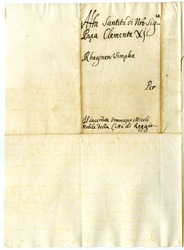 Alla Santità di Nro Sig.re
Papa Clemente XI
Rhaginen Simplex
Per
Il sacerdote Francesco Mileti
Nobile della Città di Reggio